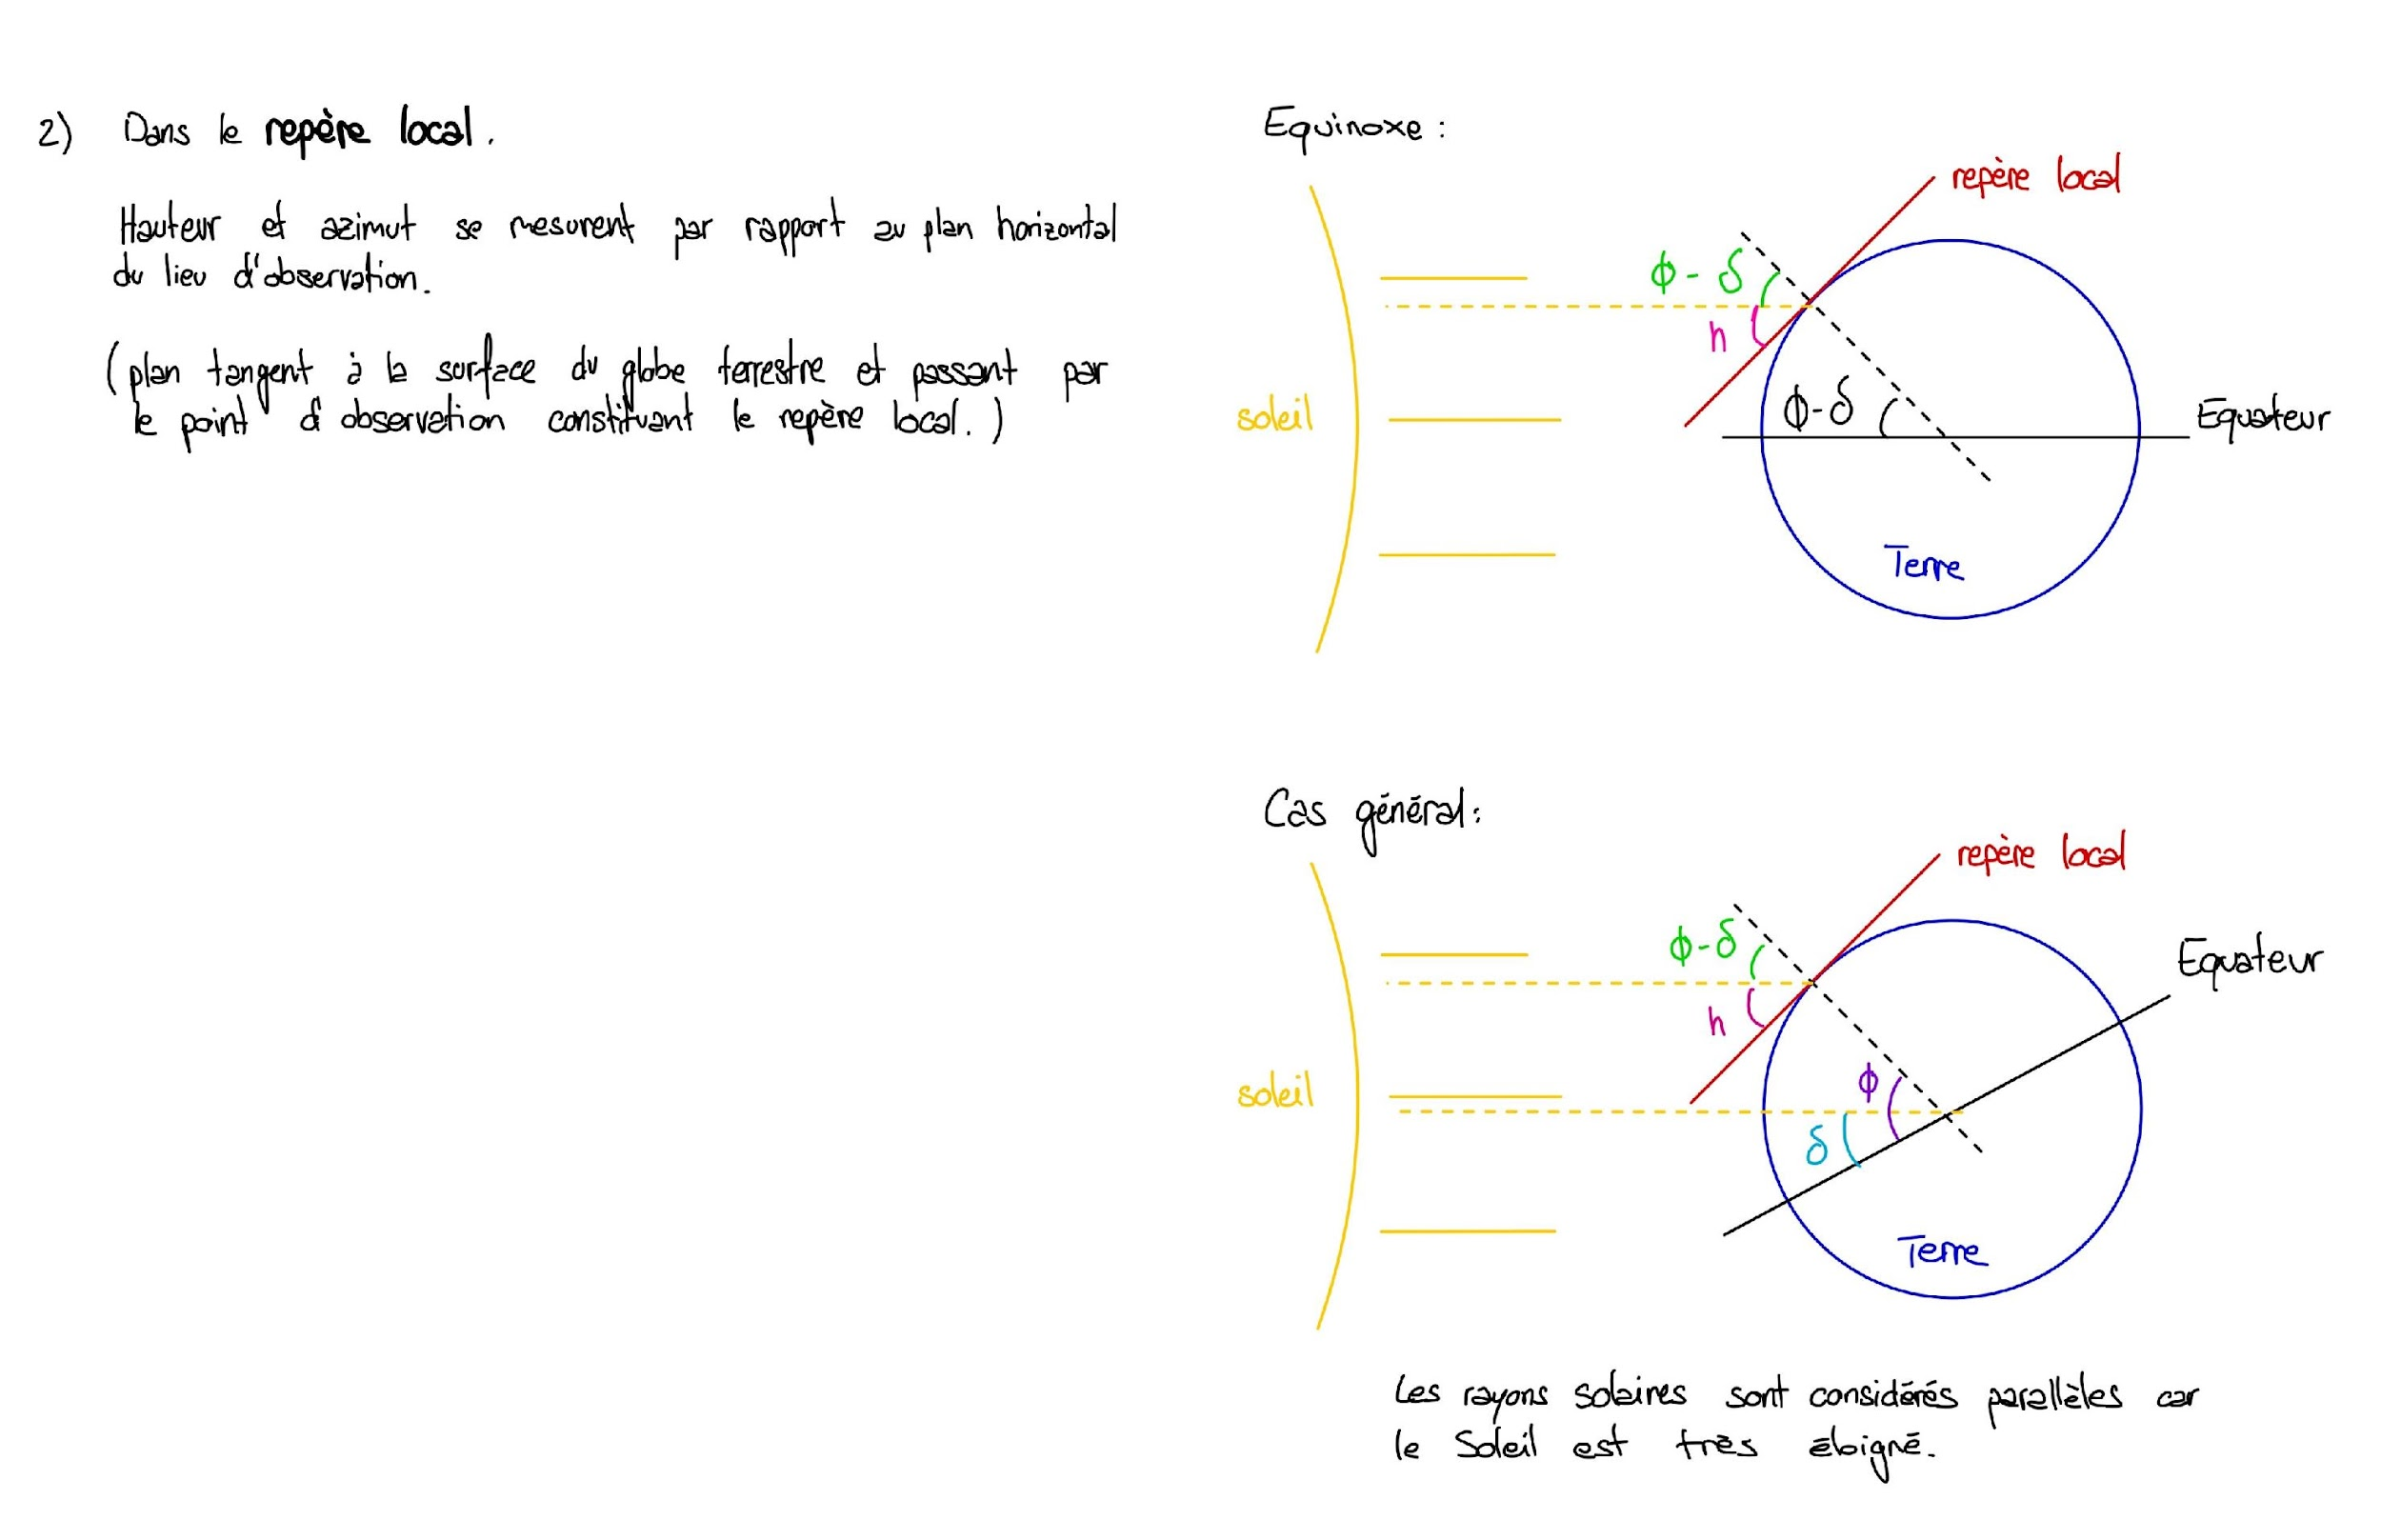 2) Dans le repère local.
Hauteur et azimut se mesurent par rapport au plan horizontal
du lieu d'observation.
(plan tangent à la surface du globe terrestre et passant par
le point d'observation constituant le repère local.)
Equinoxe :
repère local
ϕ - δ
h
soleil
ϕ-δ
Equateur
Terre
Cas général:
repère local
ϕ-δ
Equateur
h
soleil
ϕ
δ
Terre
Les rayons solaires sont considérés parallèles car
le Soleil est très éloigné.